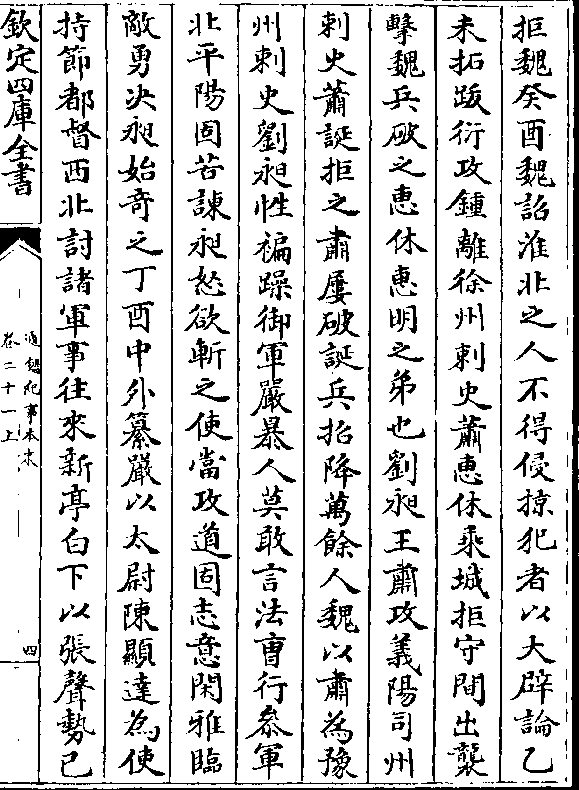 拒魏癸酉魏詔淮北之人不得侵掠犯者以大辟論乙
未拓跋衍攻鍾離徐州刺史蕭惠休乘城拒守間出襲
擊魏兵破之惠休惠明之弟也劉昶王肅攻義陽司州
刺史蕭誕拒之肅屢破誕兵招降萬餘人魏以肅為豫
州刺史劉昶性褊躁御軍嚴暴人莫敢言法曹行參軍
北平陽固苦諫昶怒欲斬之使當攻道固志意閑雅臨
敵勇決昶始奇之丁酉中外纂嚴以太尉陳顯達為使
持節都督西北討諸軍事往來新亭白下以張聲勢已
欽定四庫全書
通鑑紀事本末
卷二十一上
四